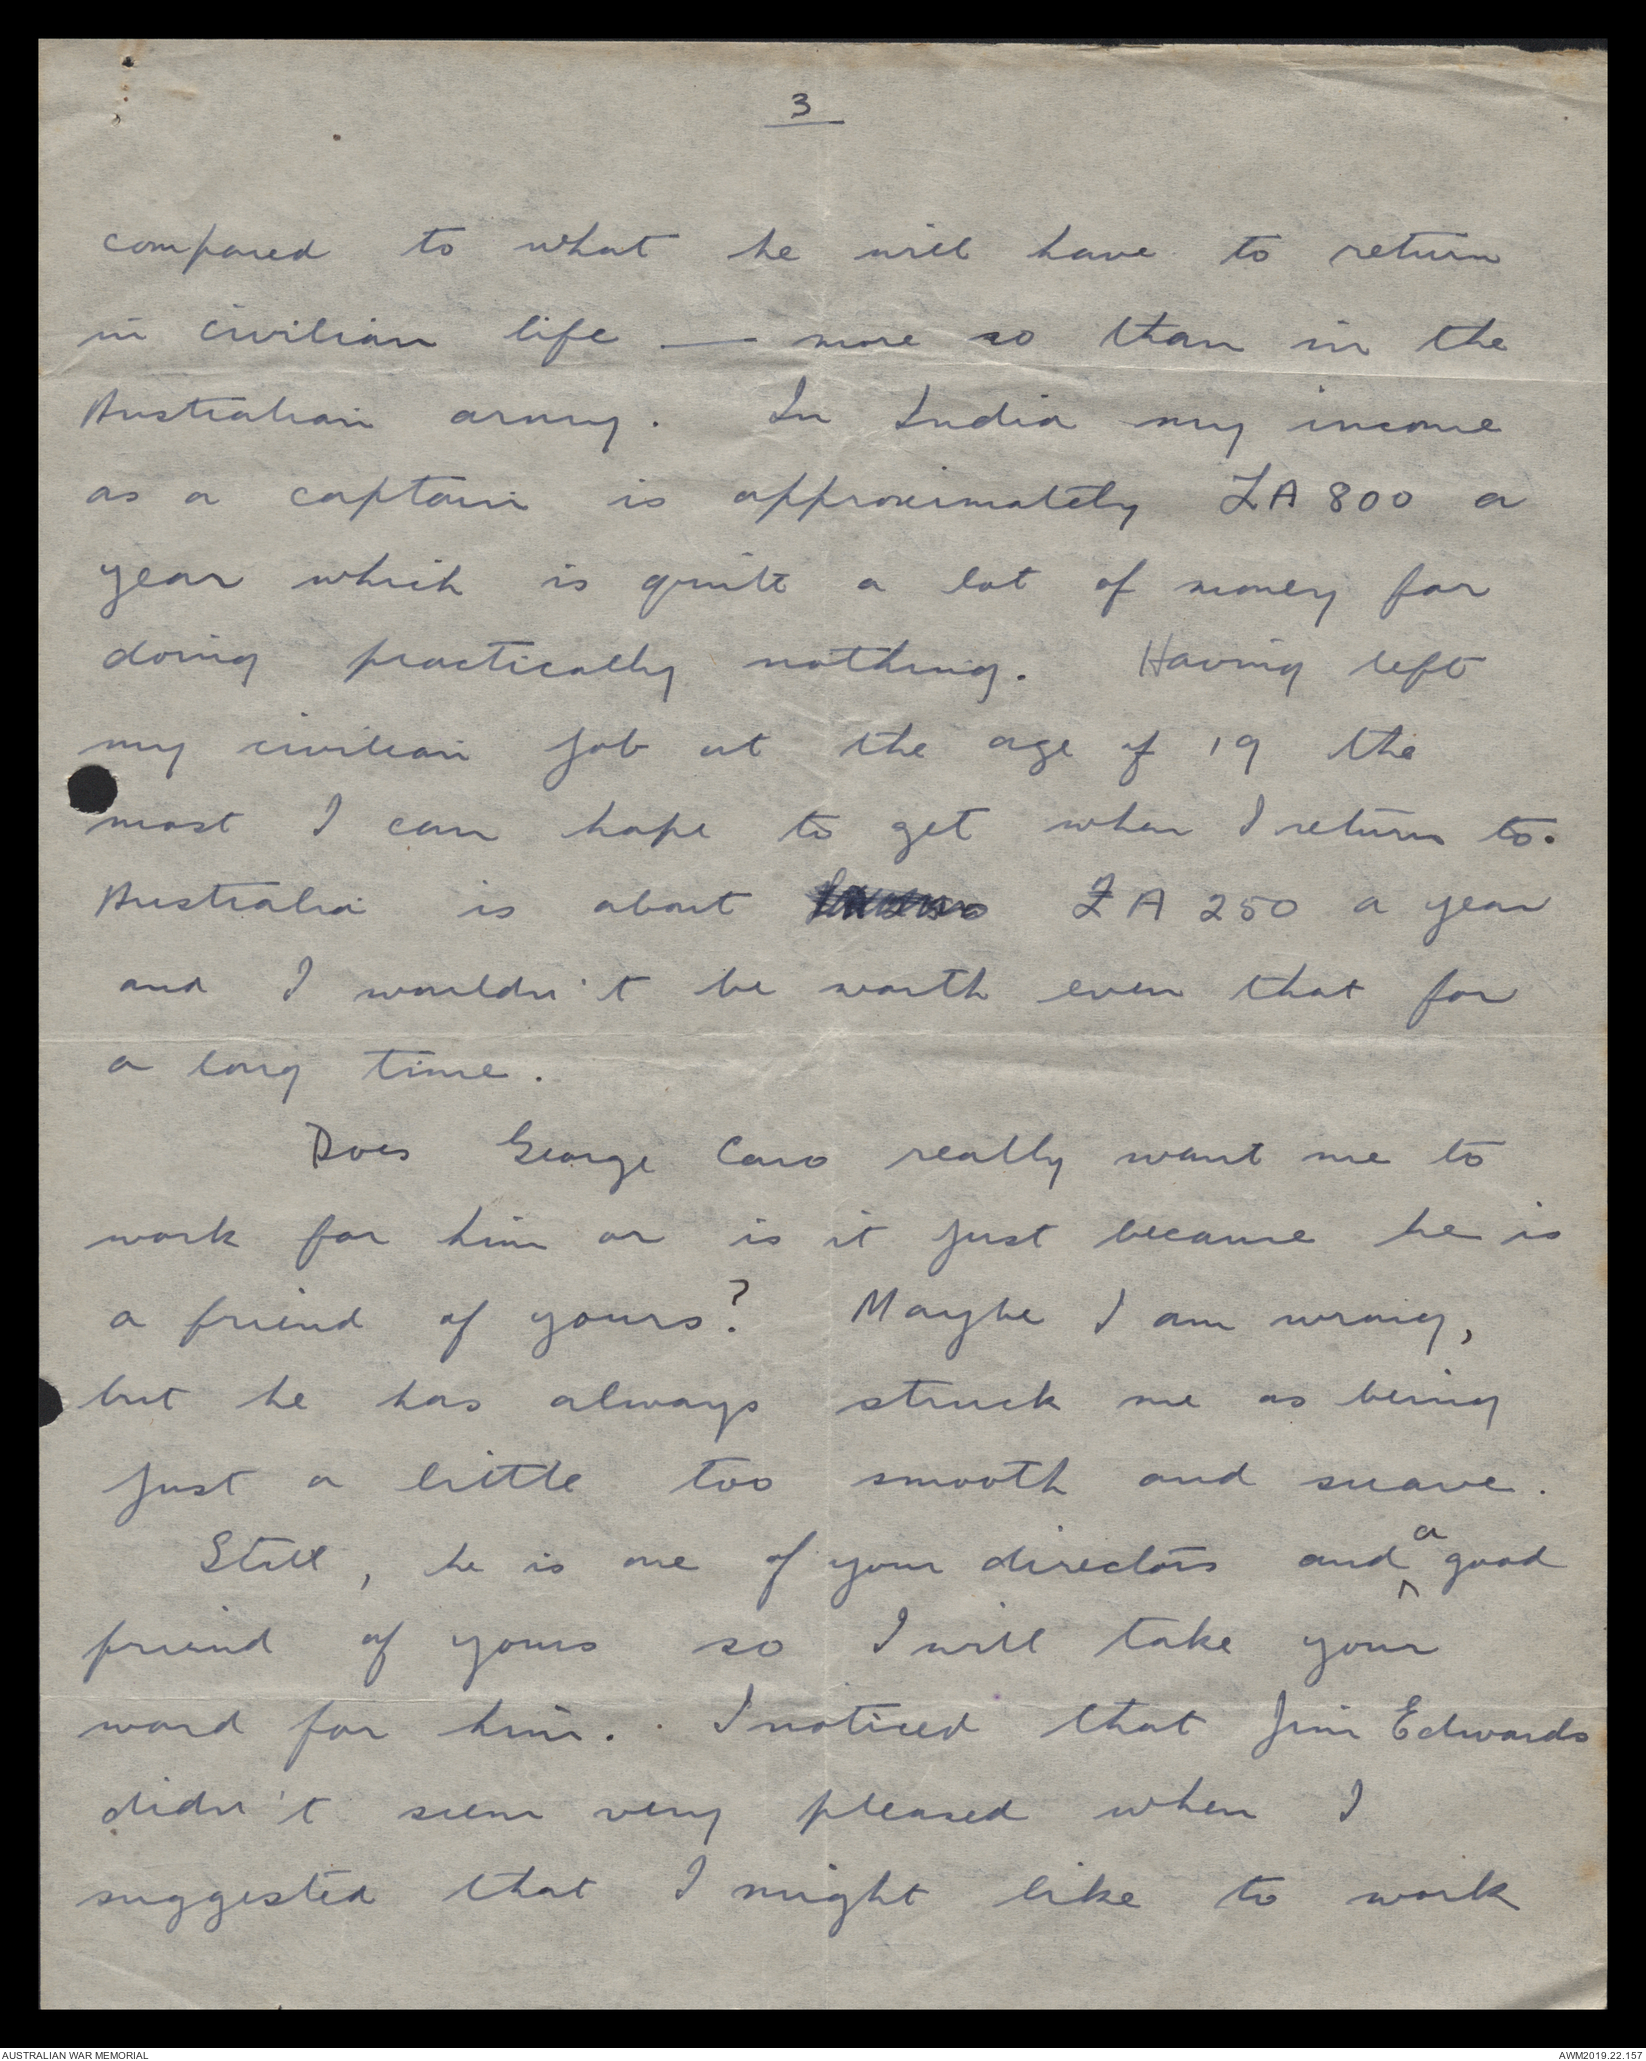 3
compared to what he will have to return
in civilian life — more so than in the
Australian army. In India my income
as a captain is approximately £A 800 a
year which is quite a lot of money for
doing practically nothing. Having left
my civilian job at the age of 19 the
most I can hope to get when I return to.
Australia is about £A 250 a year
and I wouldn't be worth even that for
a long time.
Does George Caro really want me to
work for him or is it just because he is
a friend of yours? Maybe I am wrong,
but he has always struck me as being
just a little too smooth and suave.
Still, he is one of your directors and a good
friend of yours so I will take your
word for him. I noticed that Jim Edwards
didn't seem very pleased when I
suggested that I might like to work
AUSTRALIAN WAR MEMORIAL
AWM2019.22.157